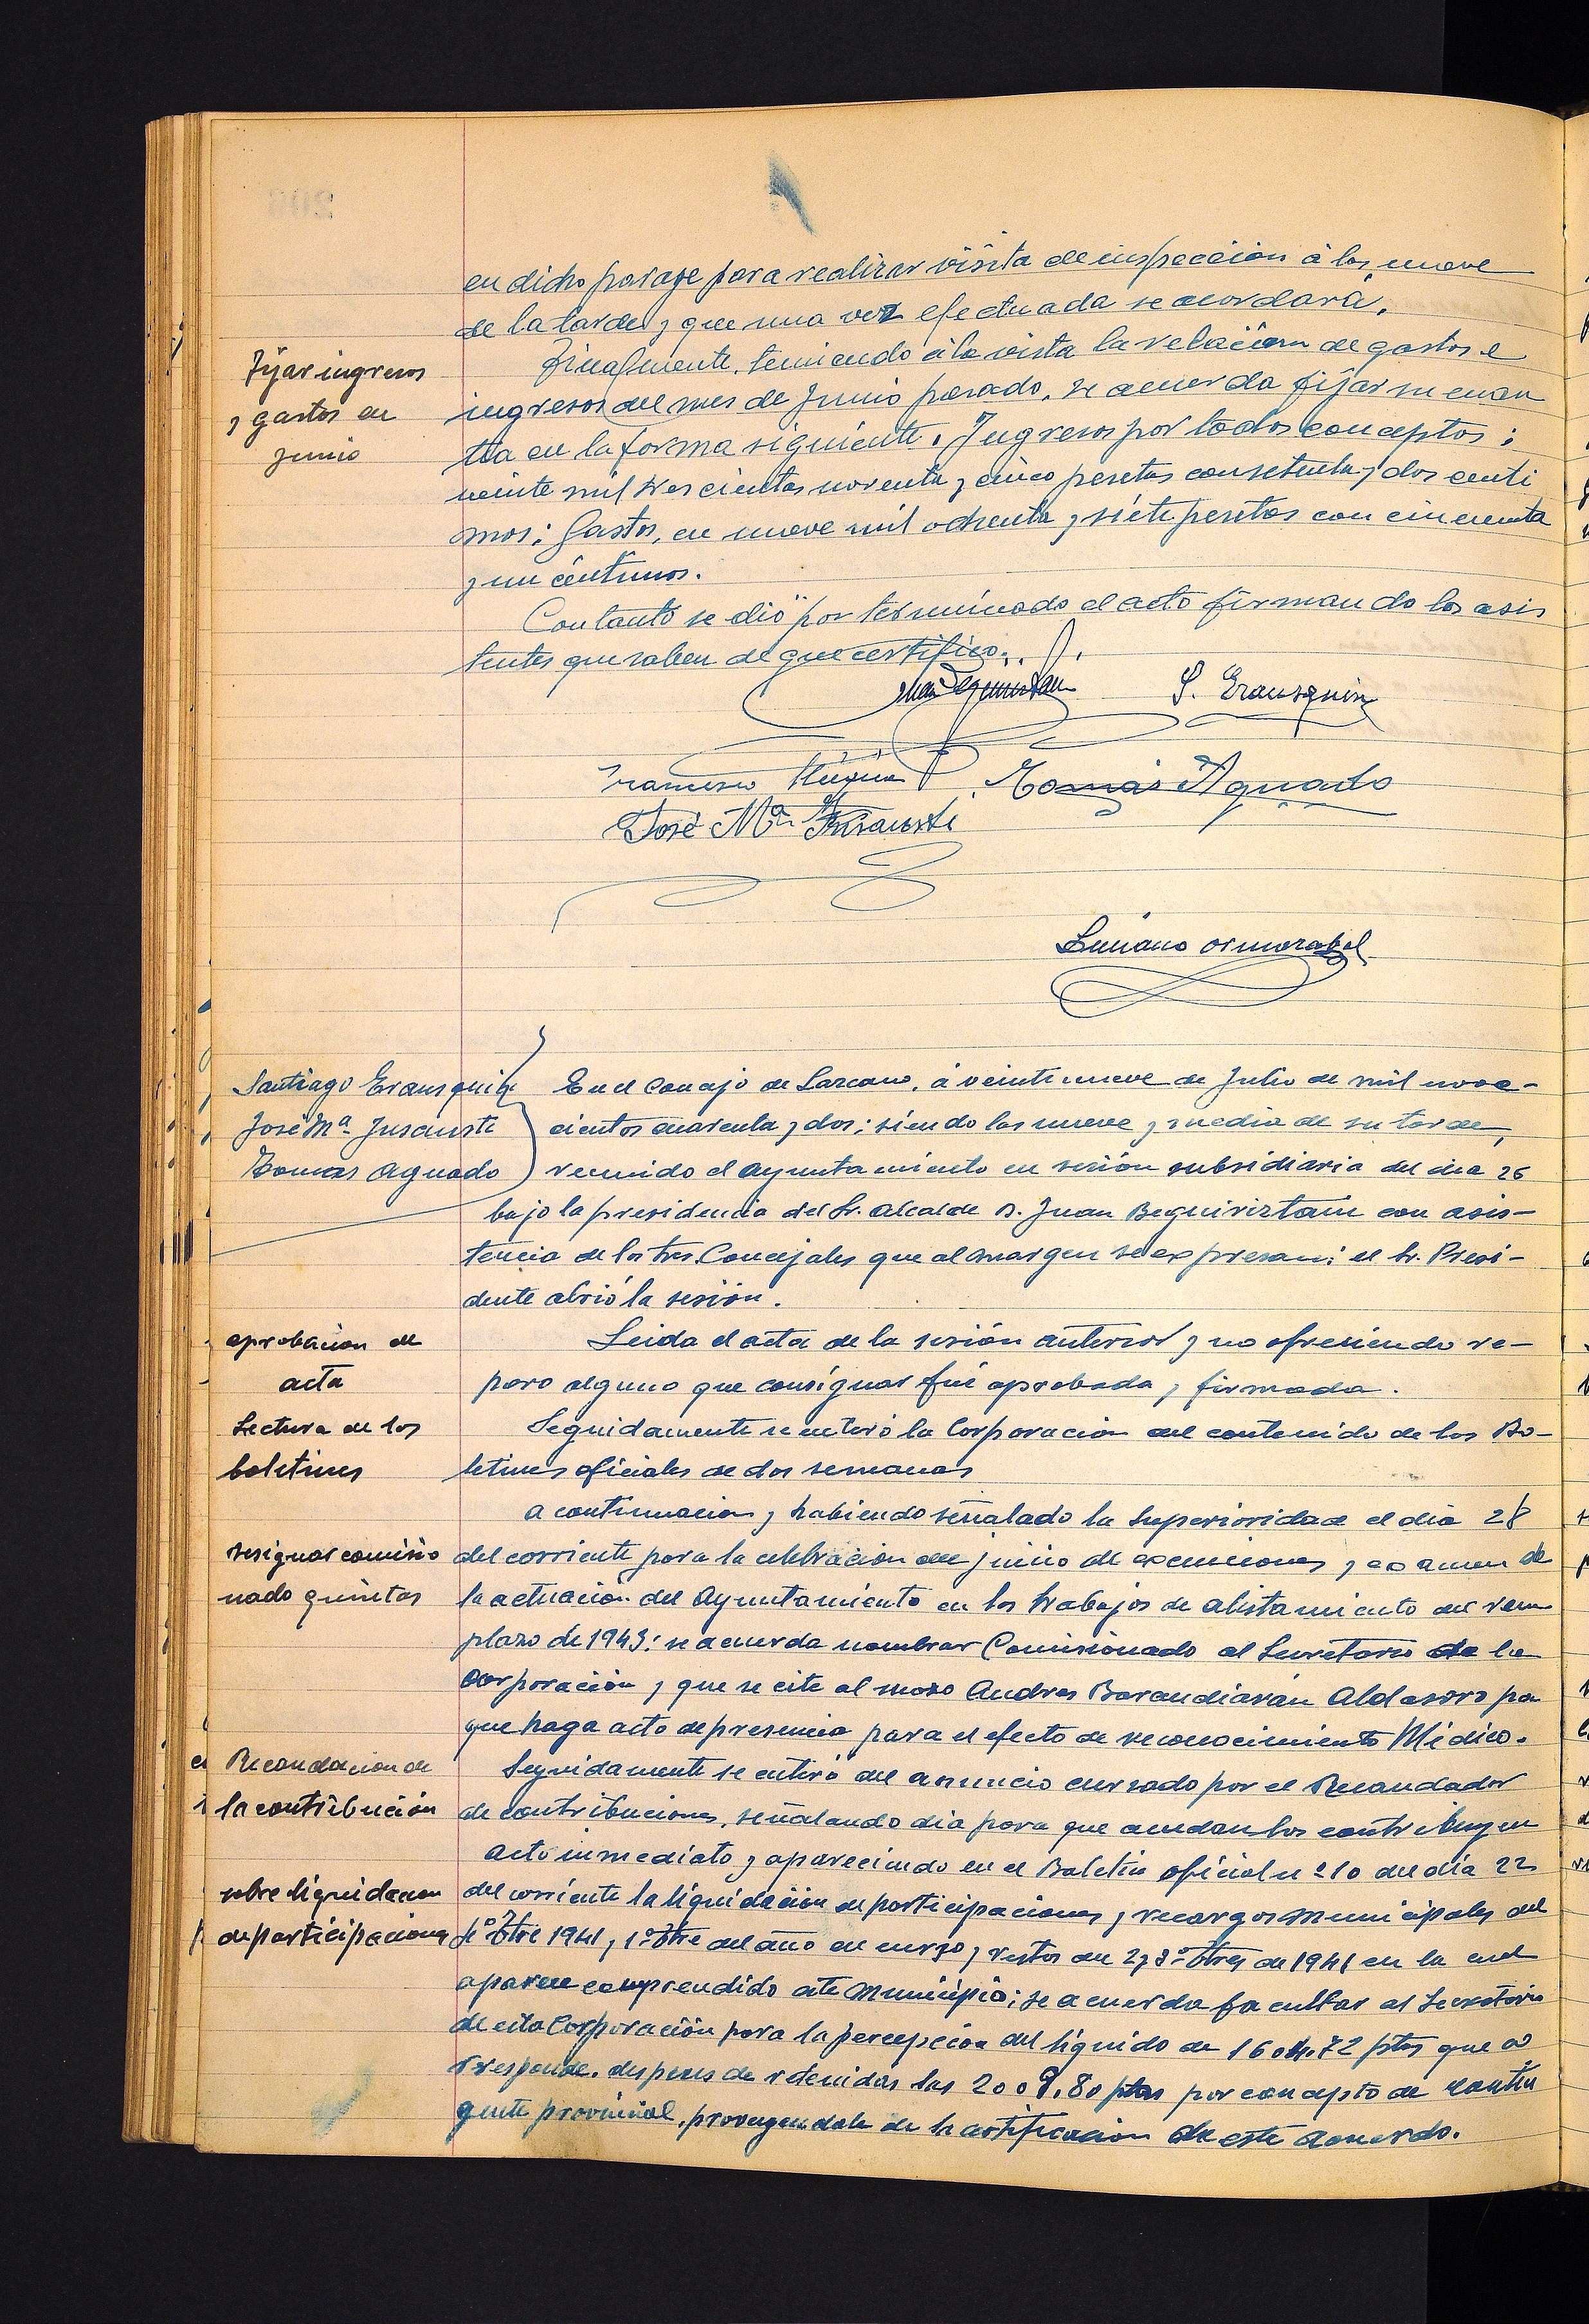 en dicho paraje para realizar visita de inspección á las nueve
de la tarde, y que una vez efectuada se acordará.
Fijar ingresos
y gastos en
junio
Finalmente, teniendo á la vista la relación de gastos e
ingresos del mes de Junio pasado, se acuerda fijar su cuan
tia en la forma siguiente. Ingresos por todos conceptos:
veinte mil trescientas noventa y cinco pesetas con setenta y dos centi
mos: Gastos, en nueve mil ochenta y siete pesetas con cincuenta
y un céntimos.
Con tanto se dió por terminado el acto firmando los asis
tentes que saben de que certifico.
Juan Beguiristain
S. Erausquin
Francisco
Tomás Aguado
José Mª Insausti
Luciano Ormazabal
Santiago Erausquin
José Mª Insausti
Tomas Aguado
En el Concejo de Lazcano, á veintinueve de Julio de mil nove-
cientos cuarenta y dos; siendo las nueve y media de su tarde,
reunido el Ayuntamiento en sesión subsidiaria del dia 26
bajo la presidencia del Sr. Alcalde D. Juan Beguiriztain con asis-
tencia de los tres Concejales que al margen se expresan: el Sr. Presi-
dente abrió la sesión.
aprobacion de
acta
Leida el acta de la sesión anterior y no ofreciendo re-
paro alguno que consignar fué aprobada y firmada.
Lectura de los
boletines
Seguidamente se enteró la Corporación del contenido de los Bo-
letines oficiales de dos semanas
Designar comisio
nado quintas
A continuacion y habiendo señalado la Superioridad el dia 28
del corriente para la celebración del juicio de exenciones y examen de
la actuación del Ayuntamiento en los trabajos de alistamiento del reem
plazo de 1943: se acuerda nombrar Comisionado al Secretario de la
Corporación y que se cite al mozo Andres Barandiarán Aldasoro pa
que haga acto de presencia para el efecto de reconocimiento Médico.
Recaudacion de
la contribución
Seguidamente se enteró del anuncio cursado por el Recaudador
de contribuciones, señalando dia para que acudan los contribuyen
sobre liquidacion
de participaciones
Acto inmediato y apareciendo en el Boletin oficial nº 10 del dia 22
del corriente la liquidación de participaciones y recargos municipales del
4º Ttre 1941, 1º Ttre del año en curso y restos del 2 y 3º Ttres de 1941 en la cual
aparece comprendido este Municipio; se acuerda facultar al Secretario
de esta Corporación para la percepción del líquido de 1604.72 ptas que co
rresponde, despues de retenidas las 2009,80 ptas por concepto de contin
gente provincial, proveyendole de la certificacion de este acuerdo.